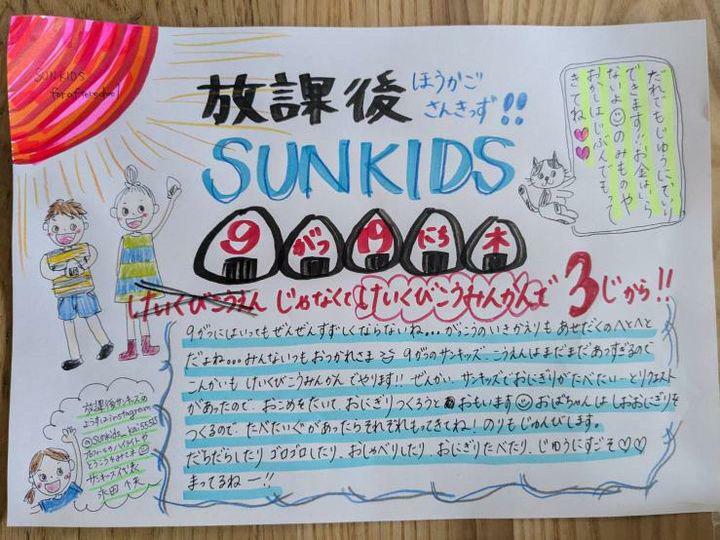 SUNKIDS
for after school
放課後
ほうかご
さんきっず!!
SUNKIDS
だれでもじゆうにでいり
できます!!お金はいら
ないよ☺のみものや
おかしはじぶんでもって
きてね♥♥
9がつ19にち木
けいくびこうえんじゃなくてけいくびこうみんかんで3じから!!
9がつにはいってもぜんぜんすずしくならないね...がっこうのいきかえりもあせだくのへとへと
だよね...みんないつもおつかれさま 9がつのサンキッズ、こうえんはまだまだあつすぎるので
こんかいもけいくびこうみんかんでやります!!ぜんかい、サンキッズでおにぎりがたべたいーとリクエスト
があったので、おこめをたいて、おにぎりつくろうとおもいます☺おばちゃんはしおおにぎりを
つくるので、たべたいぐがあったらそれぞれもってきてね!のりもじゅんびします。
だらだらしたりゴロゴロしたり、おしゃべりしたり、おにぎりたべたり、じゆうにすごそ♡♡
まってるねー!!
放課後サンキッズの
ようすはinstagram
@sunkids_kai5555
プロフィールのハイライトや
とうこうをみてネ☺
サンキッズ代表